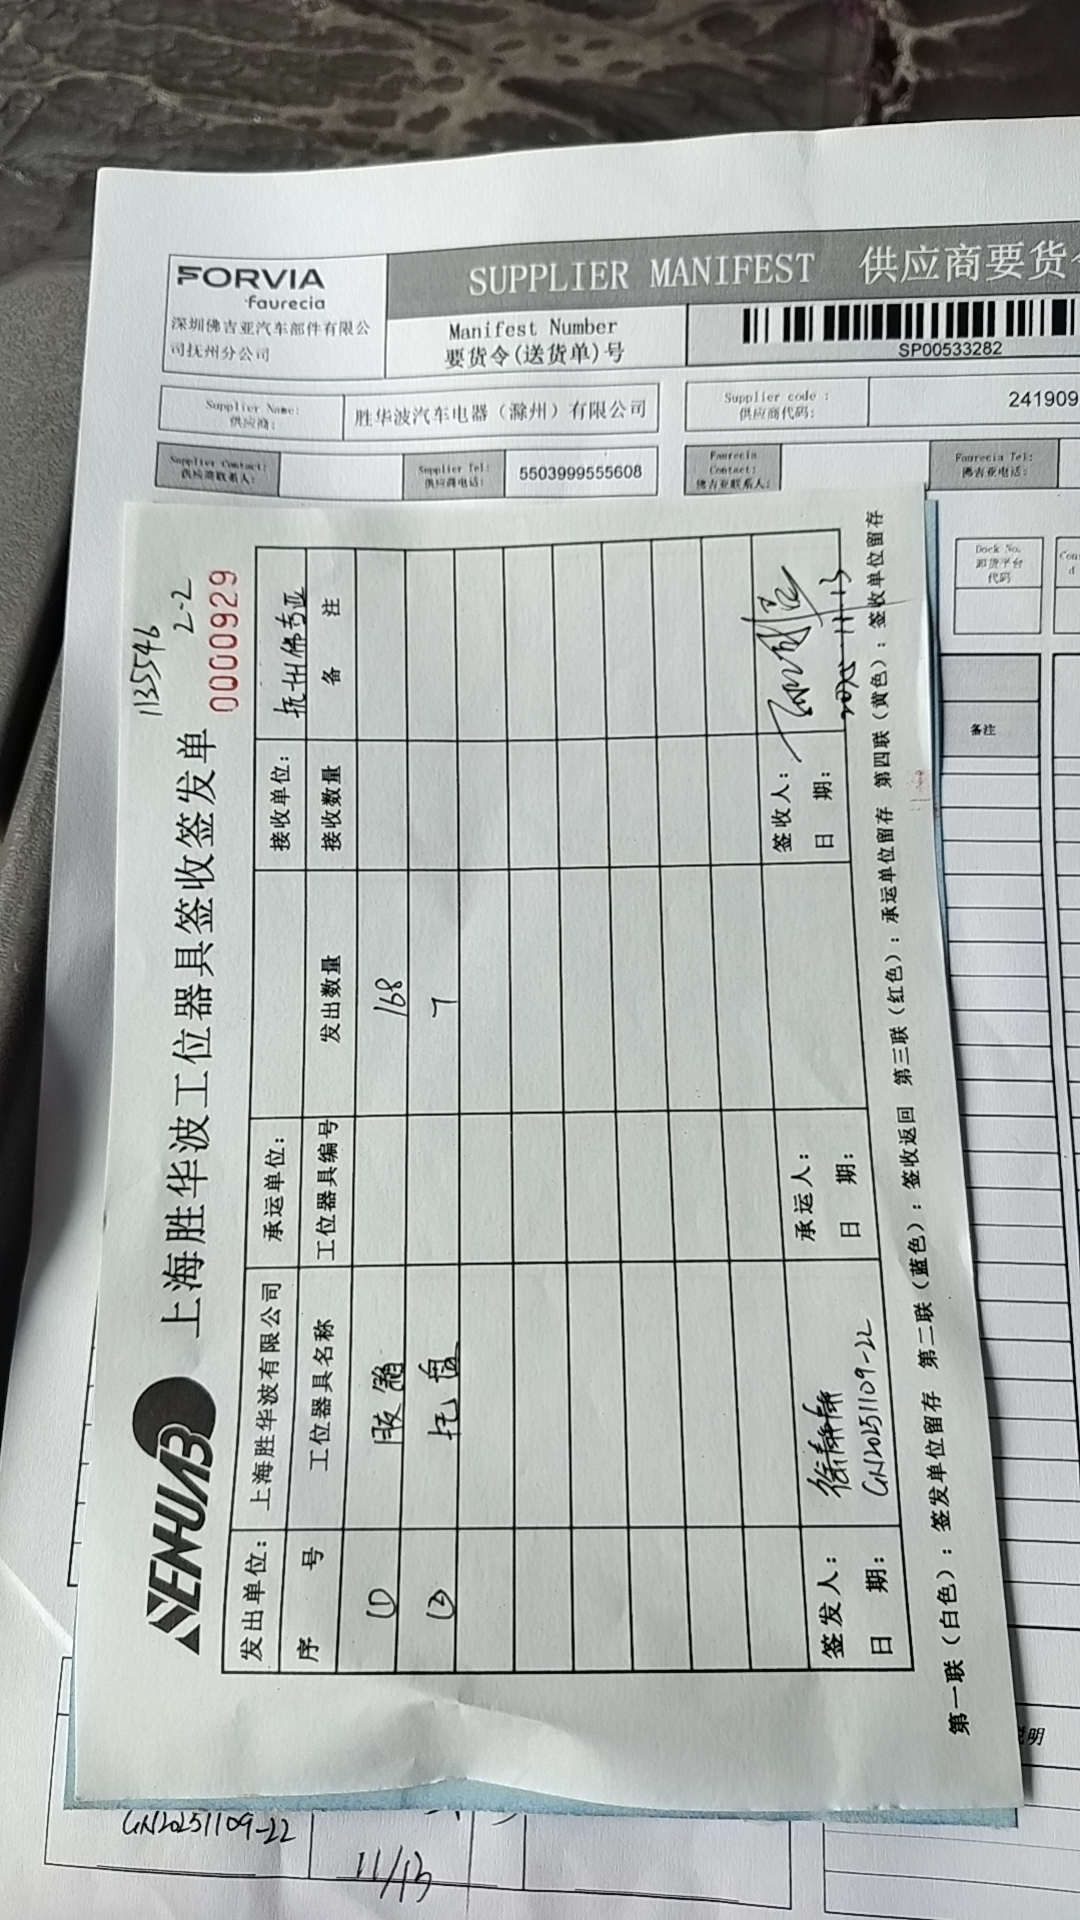 FORVIA
faurecia
深圳佛吉亚汽车部件有限公
司抚州分公司
SUPPLIER MANIFEST 供应商要货
Manifest Number
要货令(送货单)号
SP00533282
Supplier Name:
供应商:
胜华波汽车电器（滁州）有限公司
Supplier code :
供应商代码:
241909
Supplier Contact:
供应商联系人:
Supplier Tel:
供应商电话:
5503999555608
Faurecia
Contact:
佛吉亚联系人:
Faurecia Tel:
佛吉亚电话:
Dock No.
卸货平台
代码
备注
1135546
2-2
SENHUAB
上海胜华波工位器具签收签发单
0000929
发出单位: 上海胜华波有限公司 承运单位: 接收单位: 抚州佛吉亚
序 号 工位器具名称 工位器具编号 发出数量 接收数量 备 注
① 胶箱 168
② 托盘 7
签发人: 徐静静 承运人: 签收人:
日 期: GN20251109-22 日 期: 日 期: 2025.11.13
第一联（白色）: 签发单位留存 第二联（蓝色）: 签收返回 第三联（红色）: 承运单位留存 第四联（黄色）: 签收单位留存
明
GN20251109-22
11/13